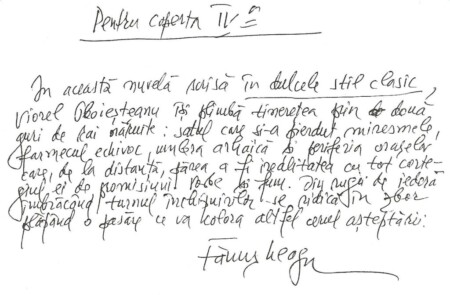 Pentru coperta IV-a
În această nuvelă scrisă în dulcele stil clasic,
Viorel Ploieșteanu își plimbă tinerețea prin două
guri de rai năruite: satul care și-a pierdut miresmele,
farmecul echivoc, umbra arhaică și periferia orașelor
care, de la distanță, părea a fi realitatea cu tot corte-
giul ei de promisiuni roze și fum. Din rugii de iederă
îmbrăcând turnul închipuirilor se ridică în zbor
o pasăre ce va colora altfel cerul așteptării.
Fănuș Neagu